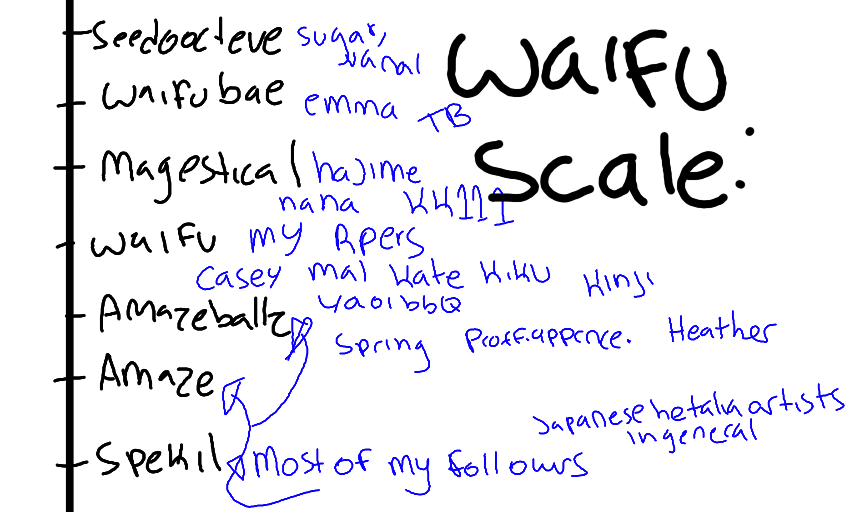 Waifu
Scale:
Seedoocteve sugar,
Waifu bae emma TB
Magestical hajime
nana KK111
waifu my Rpers
Casey mal Kate Kiku Kinji
Amazeballz yaoibbQ
Spring Heather
Amaze
Japanese hetalia artists
in general
Spekil most of my follours